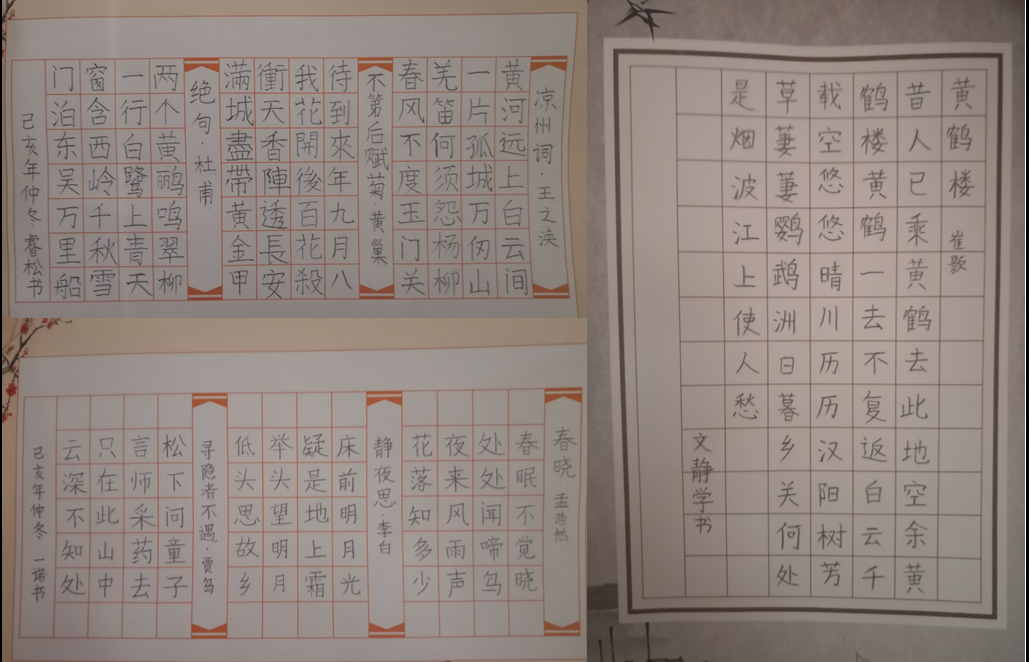 凉州词·王之涣
黄河远上白云间
一片孤城万仞山
羌笛何须怨杨柳
春风不度玉门关
不第后赋菊·黄巢
待到來年九月八
我花開後百花殺
衝天香陣透長安
滿城盡帶黄金甲
绝句·杜甫
两个黄鹂鸣翠柳
一行白鹭上青天
窗含西岭千秋雪
门泊东吴万里船
己亥年仲冬 睿松书
春晓·孟浩然
春眠不觉晓
处处闻啼鸟
夜来风雨声
花落知多少
静夜思·李白
床前明月光
疑是地上霜
举头望明月
低头思故乡
寻隐者不遇·贾岛
松下问童子
言师采药去
只在此山中
云深不知处
己亥年仲冬 一诺书
黄鹤楼 崔颢
昔人已乘黄鹤去此地空余黄
鹤楼黄鹤一去不复返白云千
载空悠悠晴川历历汉阳树芳
草萋萋鹦鹉洲日暮乡关何处
是烟波江上使人愁
文静学书